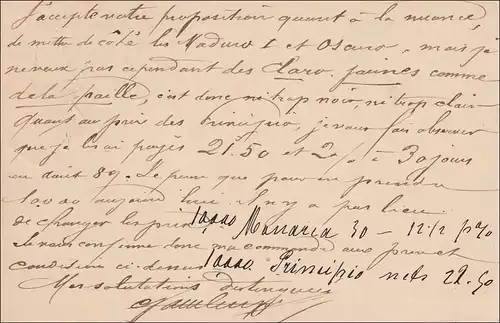 J'accepte votre proposition quant à la nuance,
de mettre de côté les Maduro & et Oscuro, mais je
ne veux pas cependant des claro jaunes comme
de la paille, c'est donc ni trop noir, ni trop clair
Quant au prix des Principio, je vous fais observer
que je les ai payés 21.50 et 2% à 30 jours
en août 89. Je pense que pour en prendre
10,000 aujourd'hui il n'y a pas lieu
de changer les prix 10,000 Monaria 30 - 12 1/2 p%
Je vous confirme donc ma commande aux prix et
condition ci-dessus 10,000 Principio nets 22.50
Mes salutations distinguées